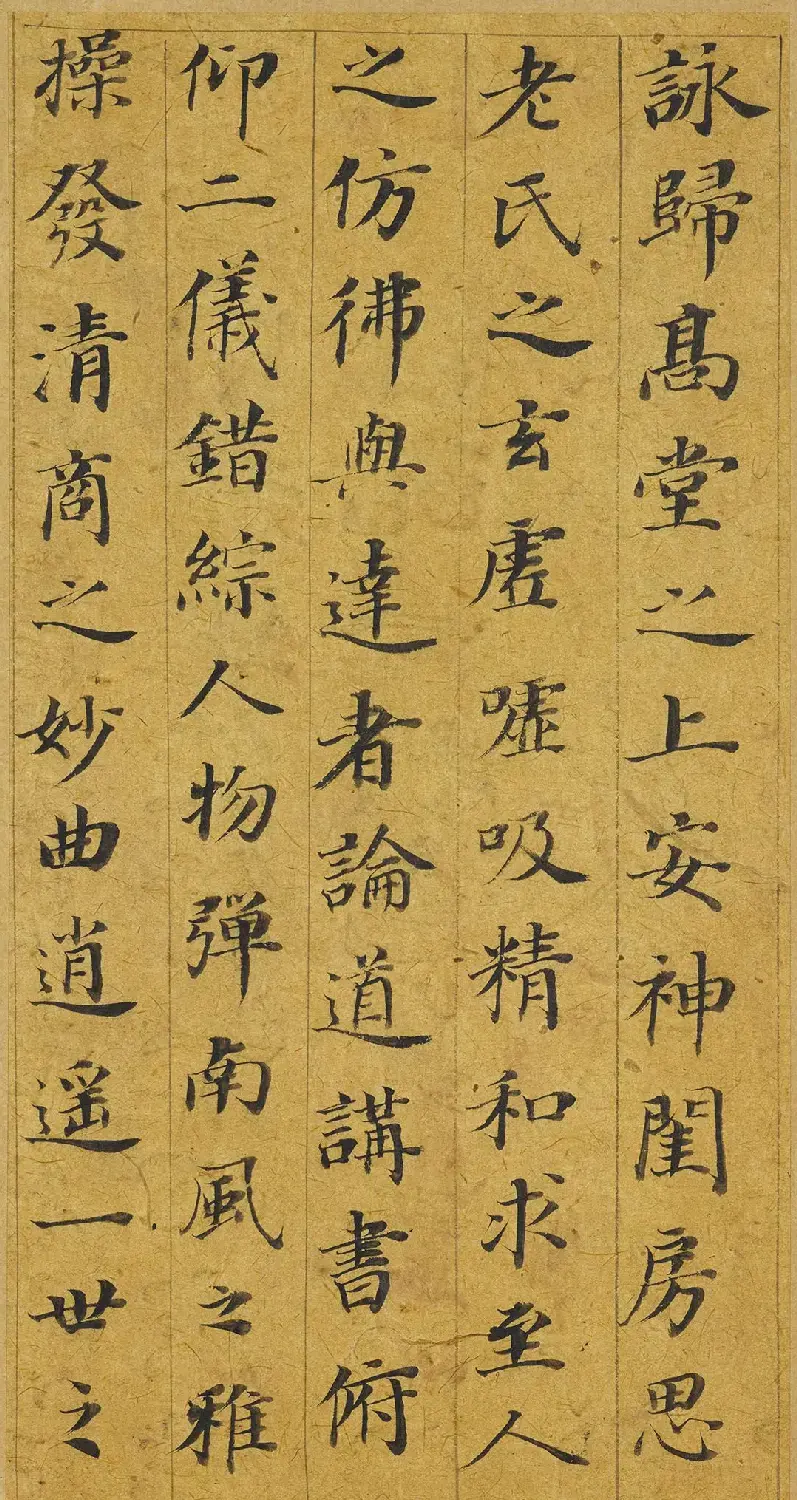 詠歸髙堂之上安神閨房思
老氏之玄虗嘘吸精和求至人
之仿彿與達者論道講書俯
仰二儀錯綜人物彈南風之雅
操發清商之妙曲逍遥一世之